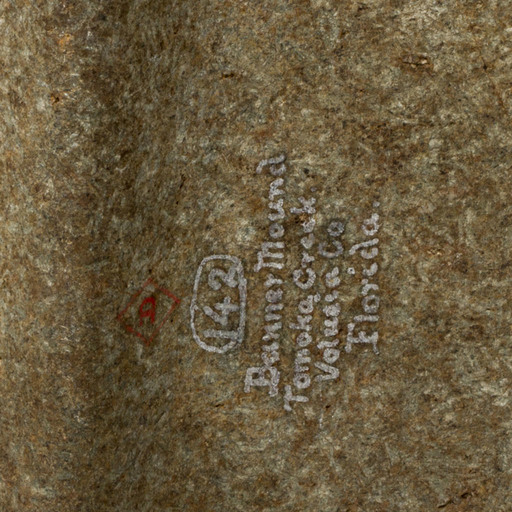 A
142
Banner Mound
Tomoka Creek
Volusia Co
Florida.